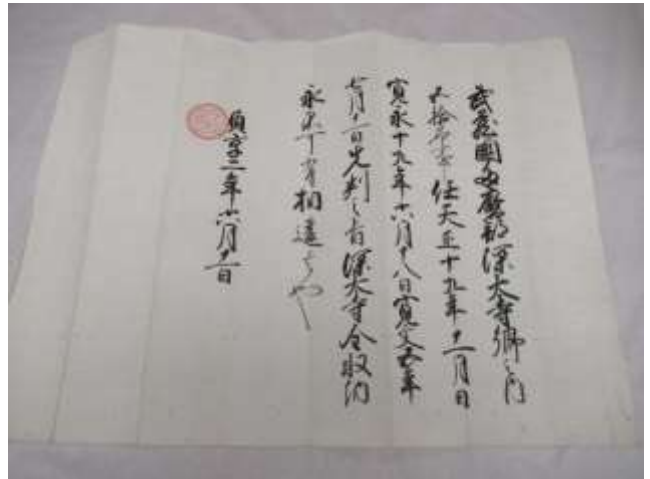 武蔵国多摩郡深大寺郷之内
五拾石事任天正十九年十一月日
寛永十九年六月十八日寛文五年
七月十一日先判之旨深大寺全収納
永不可有相違之也
貞享二年六月十一日